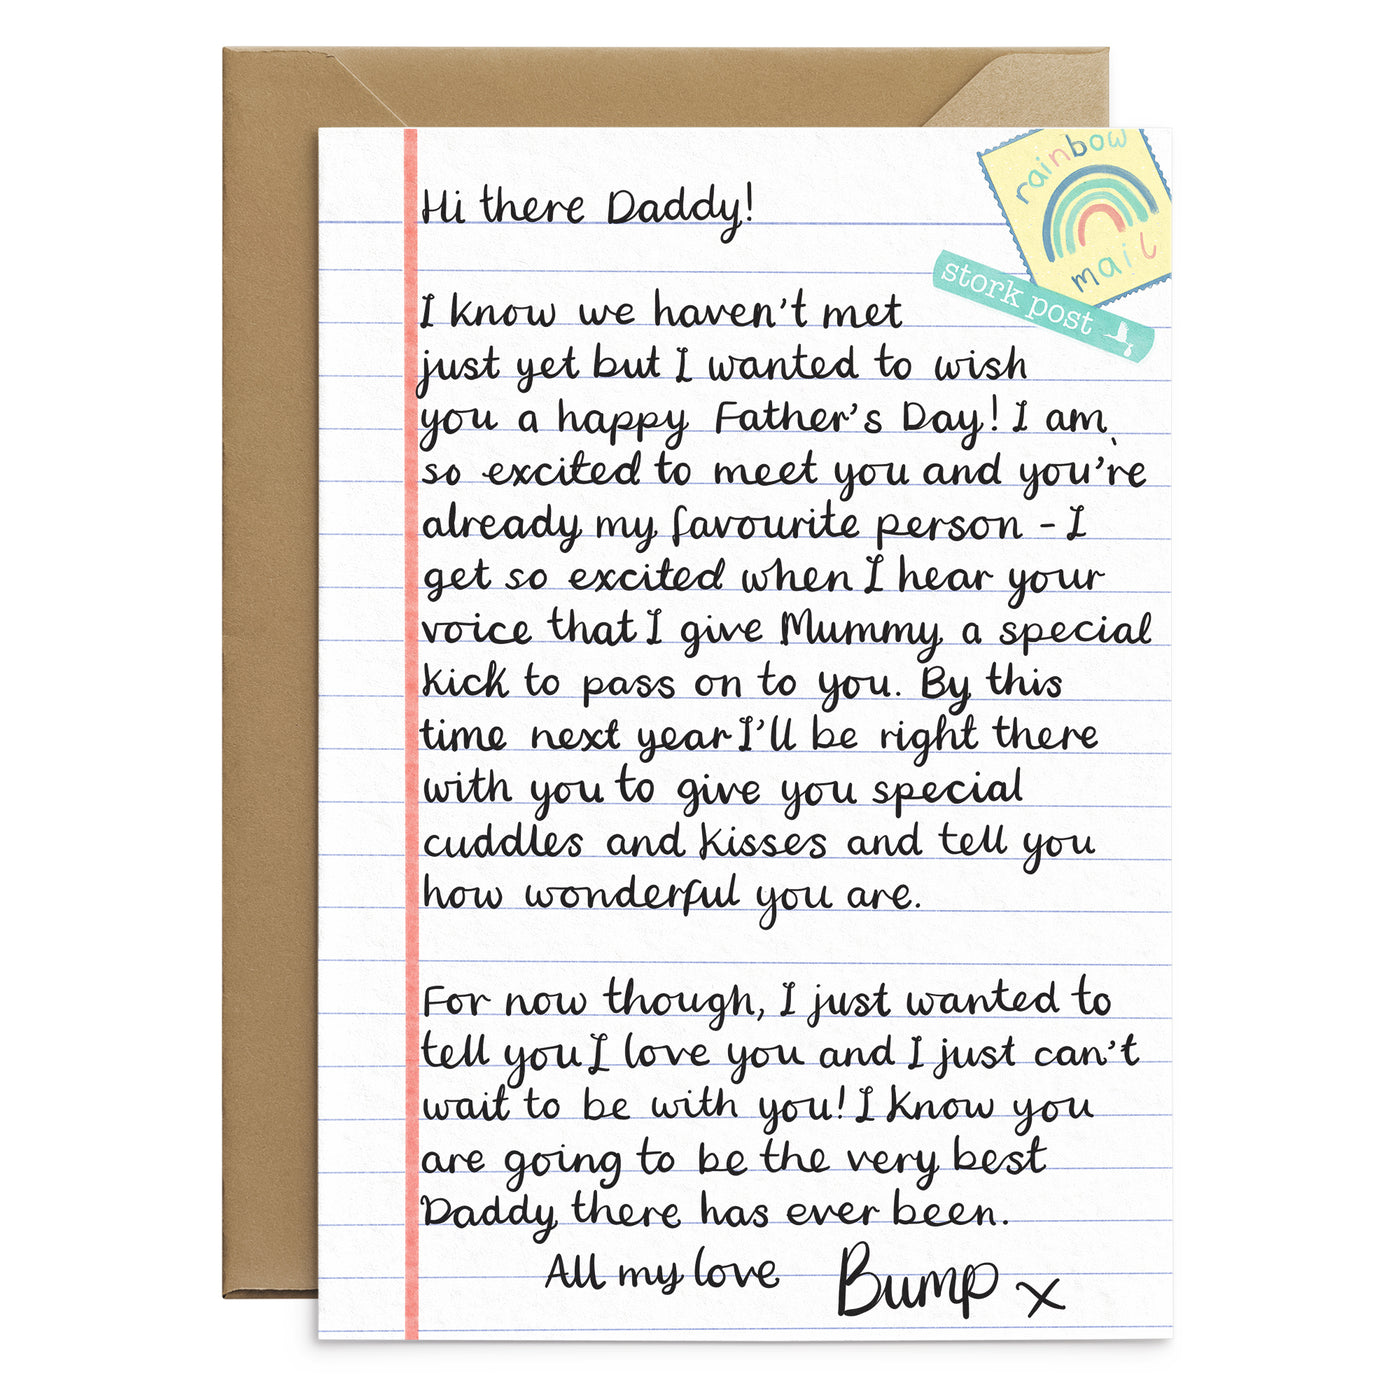 rainbow
mail
stork post
Hi there Daddy!
I know we haven't met
just yet but I wanted to wish
you a happy Father's Day! I am
so excited to meet you and you're
already my favourite person - I
get so excited when I hear your
voice that I give Mummy a special
kick to pass on to you. By this
time next year I'll be right there
with you to give you special
cuddles and kisses and tell you
how wonderful you are.
For now though, I just wanted to
tell you I love you and I just can't
wait to be with you! I know you
are going to be the very best
Daddy there has ever been.
All my love Bump x